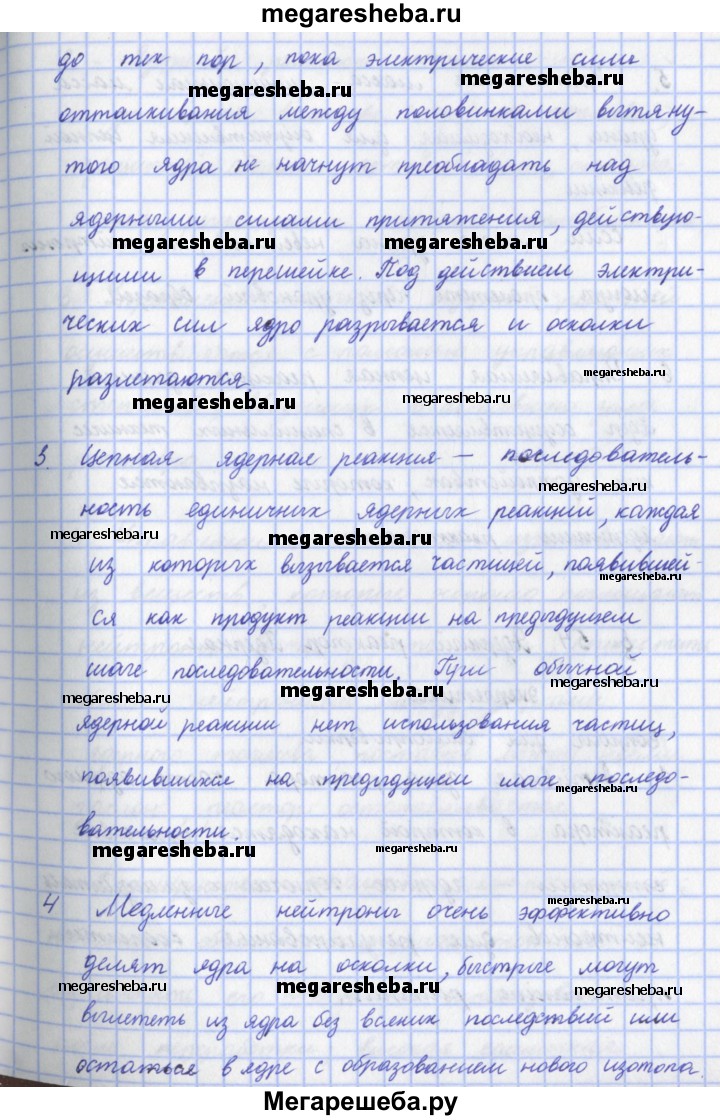 megaresheba.ru
до тех пор, пока электрические силы
megaresheba.ru megaresheba.ru
отталкивания между половинками вытяну-
того ядра не начнут преобладать над
ядерными силами притяжения, действую-
megaresheba.ru megaresheba.ru
щими в перешейке. Под действием электри-
ческих сил ядро разрывается и осколки
разлетаются.
megaresheba.ru megaresheba.ru
3. Цепная ядерная реакция — последователь-
megaresheba.ru
ность единичных ядерных реакций, каждая
megaresheba.ru megaresheba.ru
из которых вызывается частицей, появившей-
megaresheba.ru
ся как продукт реакции на предыдущем
шаге последовательности. При обычной
megaresheba.ru megaresheba.ru megaresheba.ru
ядерной реакции нет использования частиц,
появившихся на предыдущем шаге последо-
megaresheba.ru
вательности.
megaresheba.ru megaresheba.ru
megaresheba.ru
4 Медленные нейтроны очень эффективно
делят ядра на осколки, быстрые могут
megaresheba.ru megaresheba.ru megaresheba.ru
вылететь из ядра без всяких последствий или
остаться в ядре с образованием нового изотопа.
Мегарешеба.ру